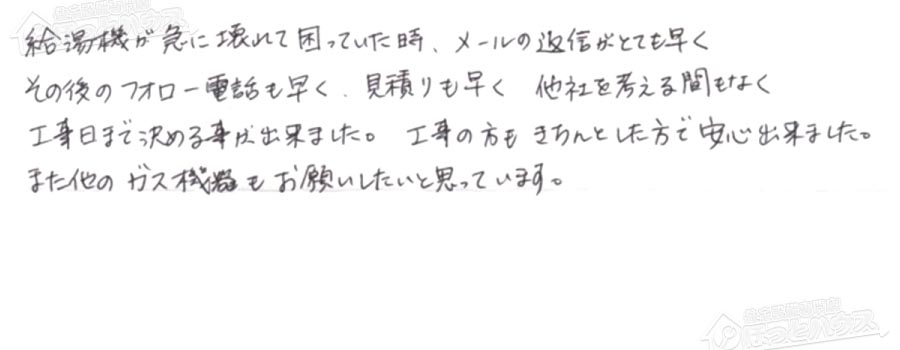 給湯機が急に壊れて困っていた時、メールの返信がとても早く
その後のフォロー電話も早く、見積りも早く 他社を考える間もなく
工事日まで決める事が出来ました。 工事の方も きちんとした方で 安心出来ました。
また他の ガス機器も お願いしたいと思っています。
ほっとハウス